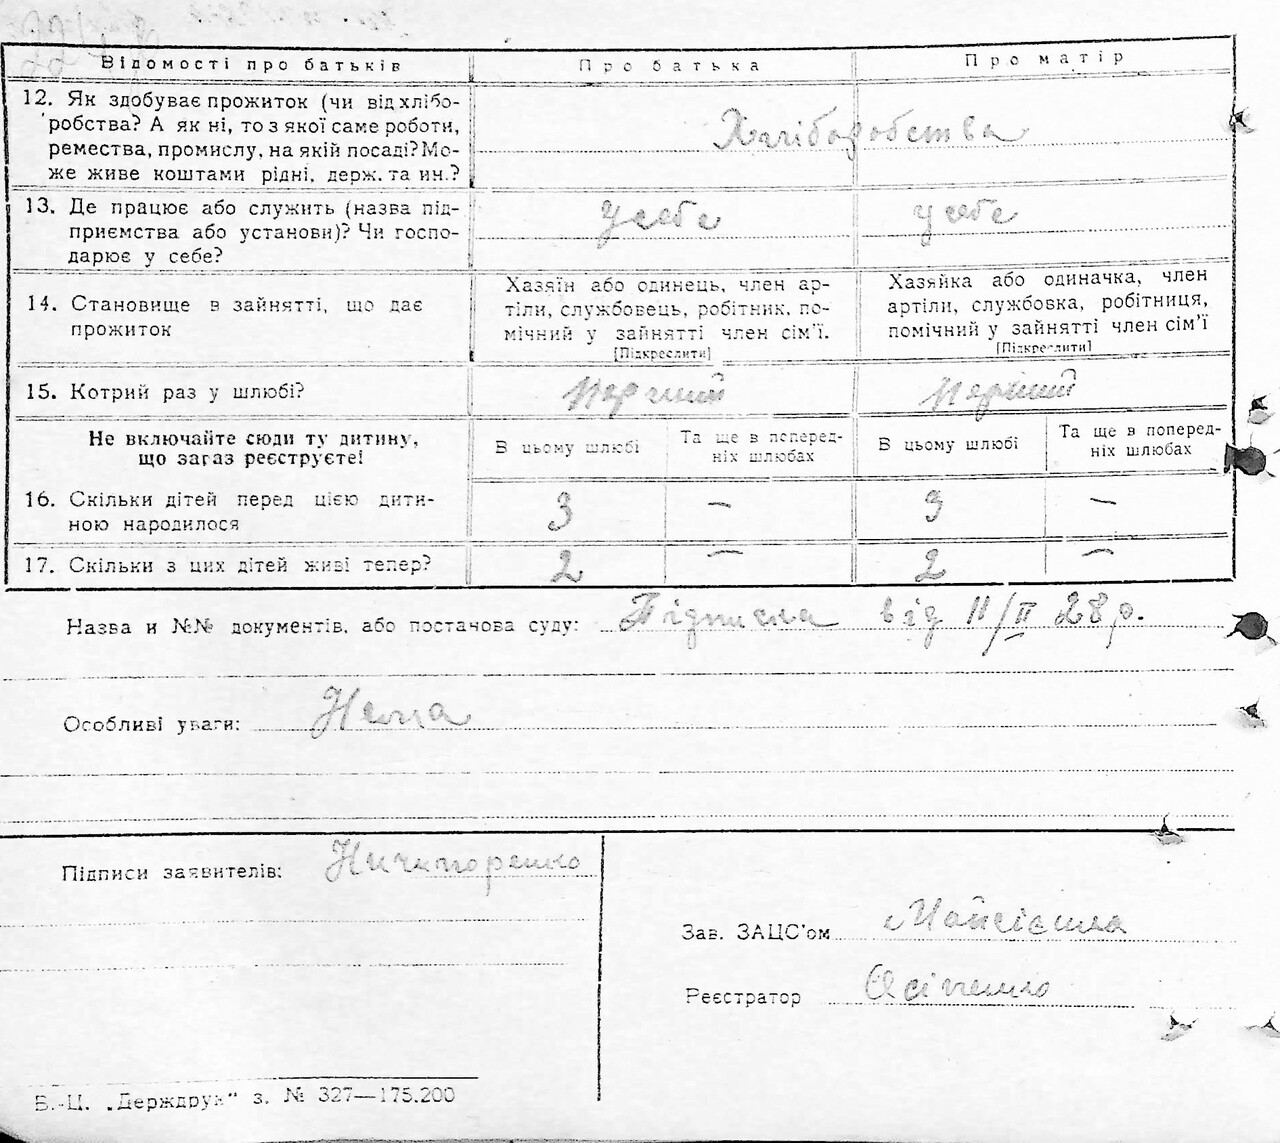 Відомості про батьків
Про батька
Про матір
12. Як здобуває прожиток (чи від хлібо-
робства? А як ні, то з якої саме роботи,
ремества, промислу, на якій посаді? Мо-
же живе коштами рідні, держ. та ин.?
Хліборобства
13. Де працює або служить (назва під-
приємства або установи)? Чи госпо-
дарює у себе?
У себе
У себе
14. Становище в зайнятті, що дає
прожиток
Хазяїн або одинець, член ар-
тіли, службовець, робітник, по-
мічний у зайнятті член сім'ї.
[Підкреслити]
Хазяйка або одиначка, член
артіли, службовка, робітниця,
помічний у зайнятті член сім'ї
[Підкреслити]
15. Котрий раз у шлюбі?
Перший
Перший
Не включайте сюди ту дитину,
що зараз реєструєте!
В цьому шлюбі
Та ще в поперед-
ніх шлюбах
В цьому шлюбі
Та ще в поперед-
ніх шлюбах
16. Скільки дітей перед цією дити-
ною народилося
3
—
3
—
17. Скільки з цих дітей живі тепер?
2
—
2
—
Назва и №№ документів, або постанова суду: Підписка від 11/II 28 р.
Особливі уваги: Нема
Підписи заявителів: Ничипоренко
Зав. ЗАЦС'ом
Реєстратор Осіпенко
В.-Ц. „Держдрук" з. № 327—175.200